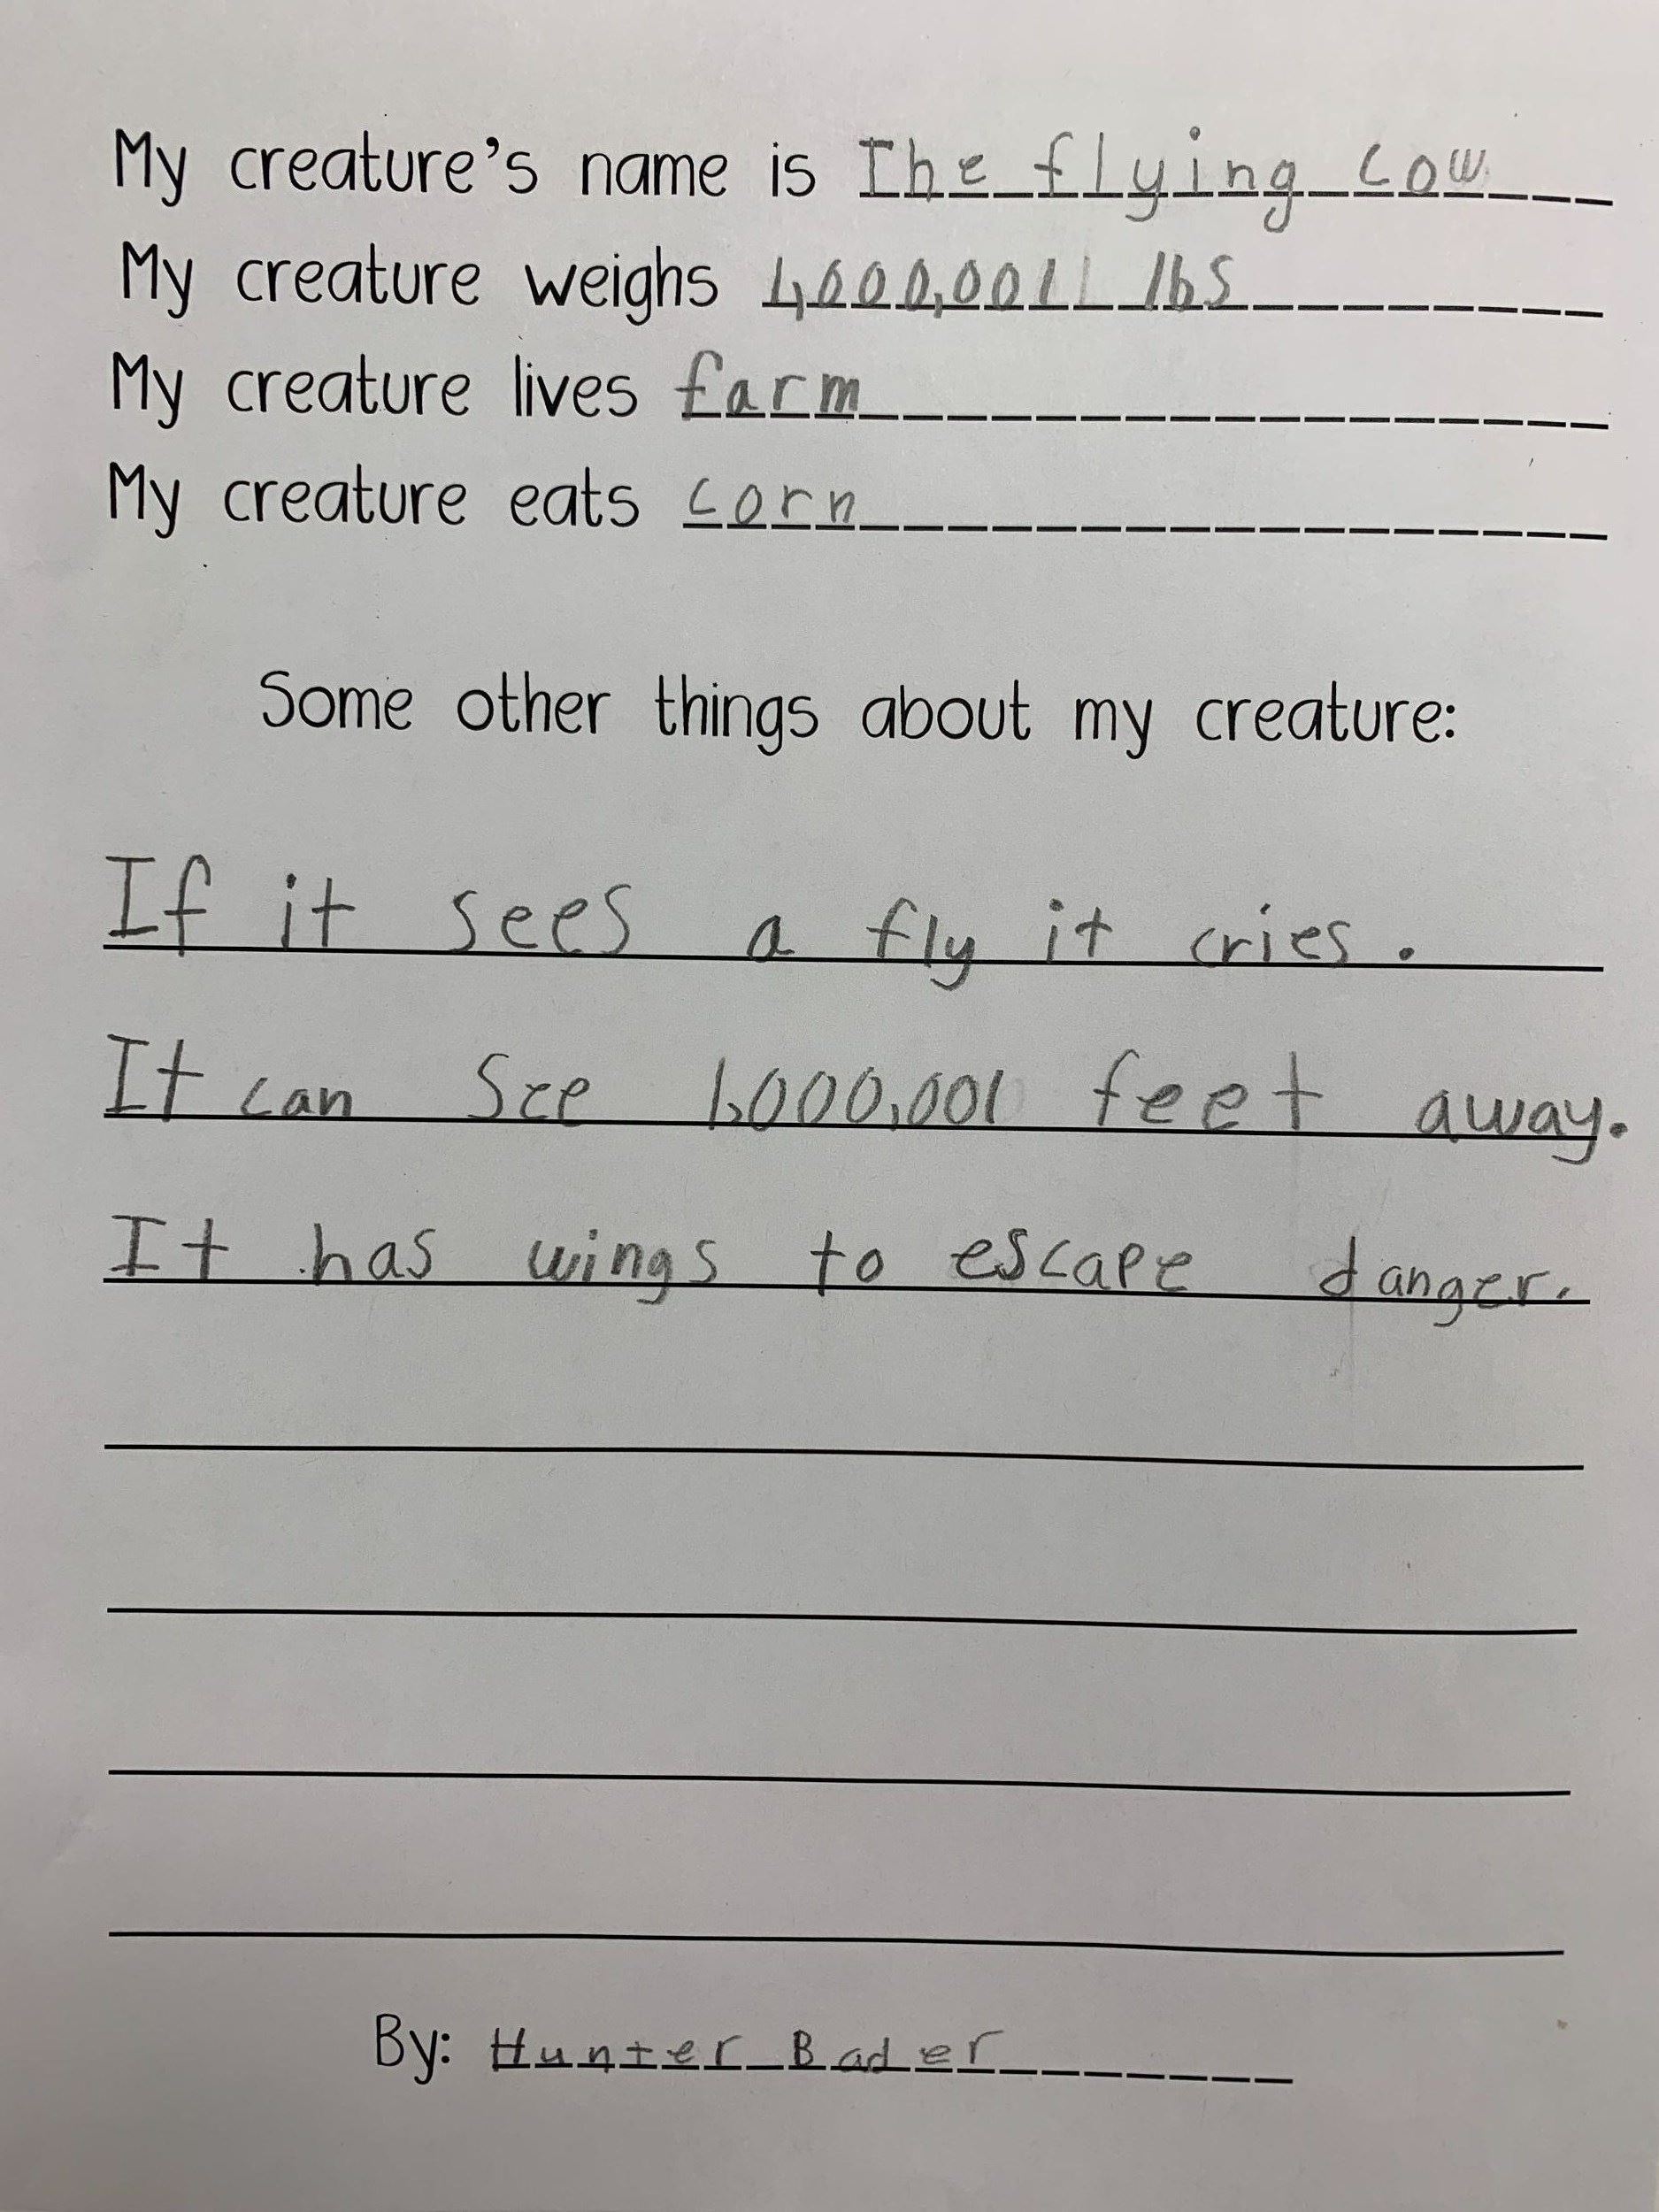 My creature's name is The flying cow
My creature weighs 1,000,001 lbs
My creature lives farm
My creature eats corn
Some other things about my creature:
If it sees a fly it cries.
It can see 1,000,001 feet away.
It has wings to escape danger.
By: Hunter Bader